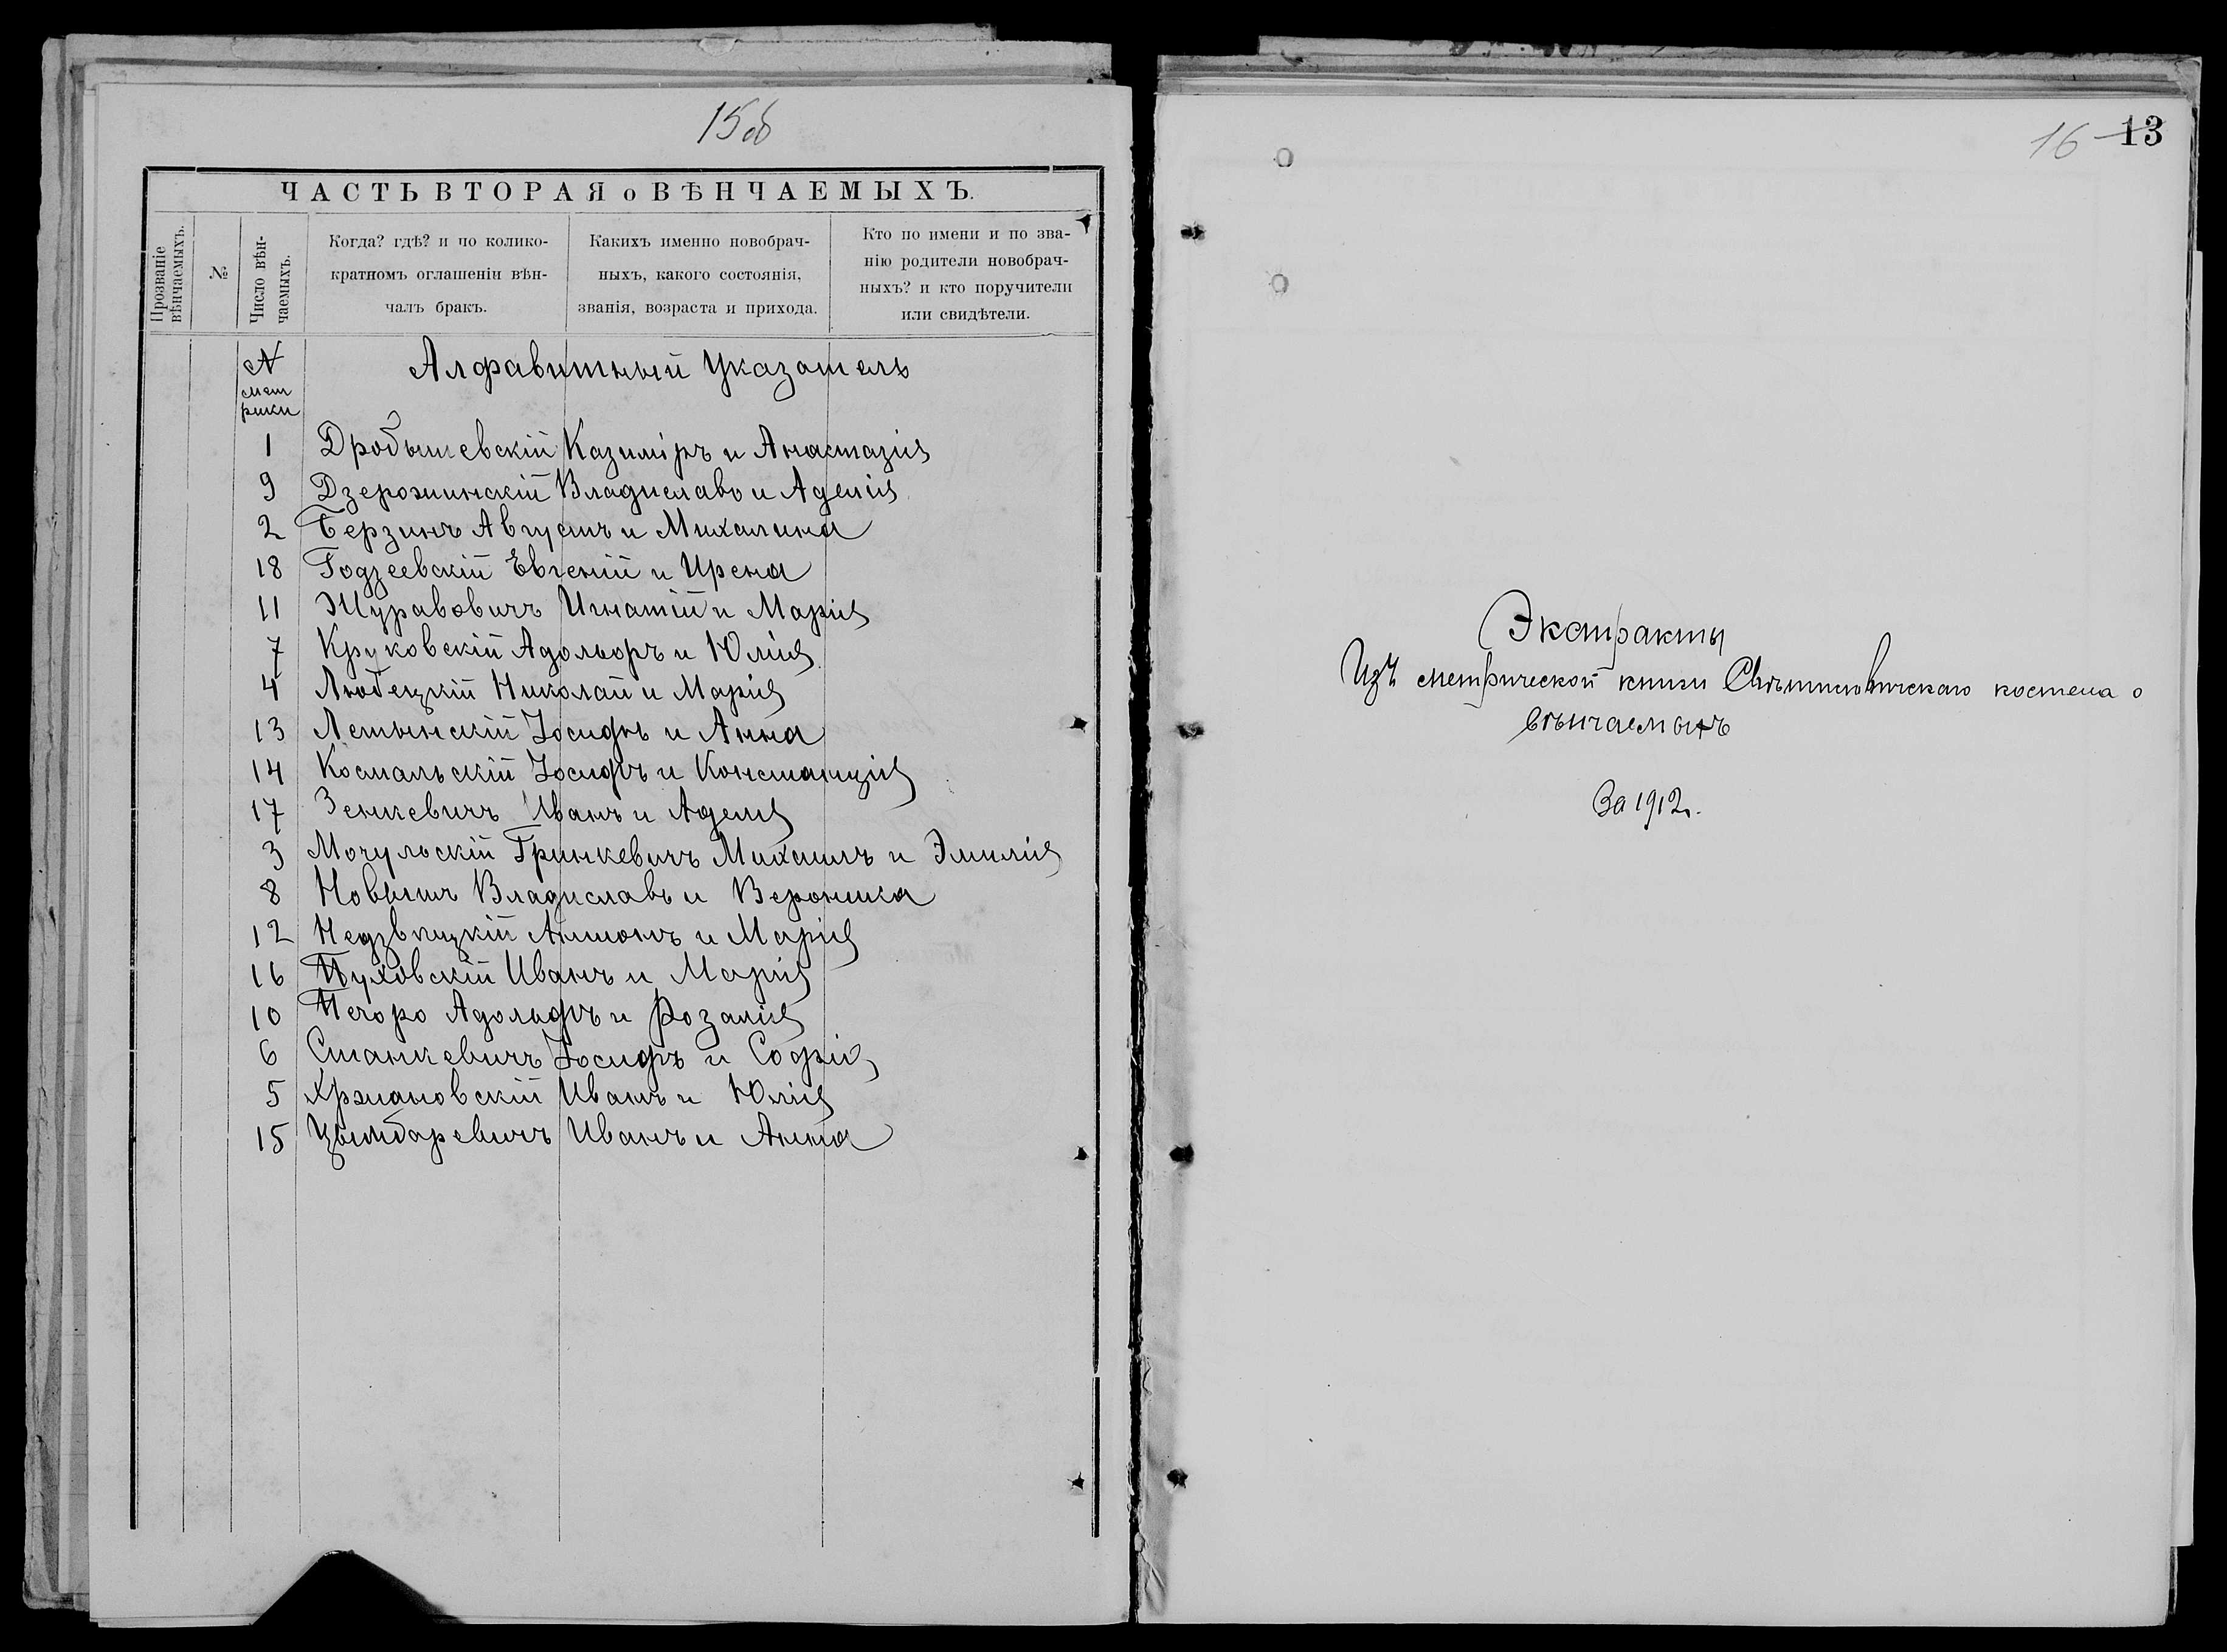 15об
ЧАСТЬ ВТОРАЯ о ВѢНЧАЕМЫХЪ.
Прозваніе вѣнчаемыхъ.
№
Число вѣнчаемыхъ.
Когда? гдѣ? и по колико-
кратномъ оглашеніи вѣн-
чалъ бракъ.
Какихъ именно новобрач-
ныхъ, какого состоянія,
званія, возраста и прихода.
Кто по имени и по зва-
нію родители новобрач-
ныхъ? и кто поручители
или свидѣтели.
№ метрики
Алфавитный Указатель
1 Дробышевскій Казиміръ и Анастазія
9 Дзерожинскій Владиславъ и Аделія
2 Берзинъ Августъ и Михалина
18 Годзеевскій Евгеній и Ирена
11 Журавовичъ Игнатій и Марія
7 Круковскій Адольфъ и Юлія
4 Любецкій Николай и Марія
13 Летынскій Іосифъ и Анна
14 Космальскій Іосифъ и Констанція
17 Зенкевичъ Иванъ и Аделя
3 Мочульскій Гринкевичъ Михаилъ и Эмилія
8 Новышъ Владиславъ и Вероника
12 Недзвѣцкій Антонъ и Марія
16 Пуховскій Иванъ и Марія
10 Печоро Адольфъ и Розалія
6 Станкевичъ Іосифъ и Софія
5 Хржановскій Иванъ и Юлія
15 Цвымбаревичъ Иванъ и Анна
16 13
Экстракты
Изъ метрической книги костела о
вѣнчаемыхъ
За 1912г.